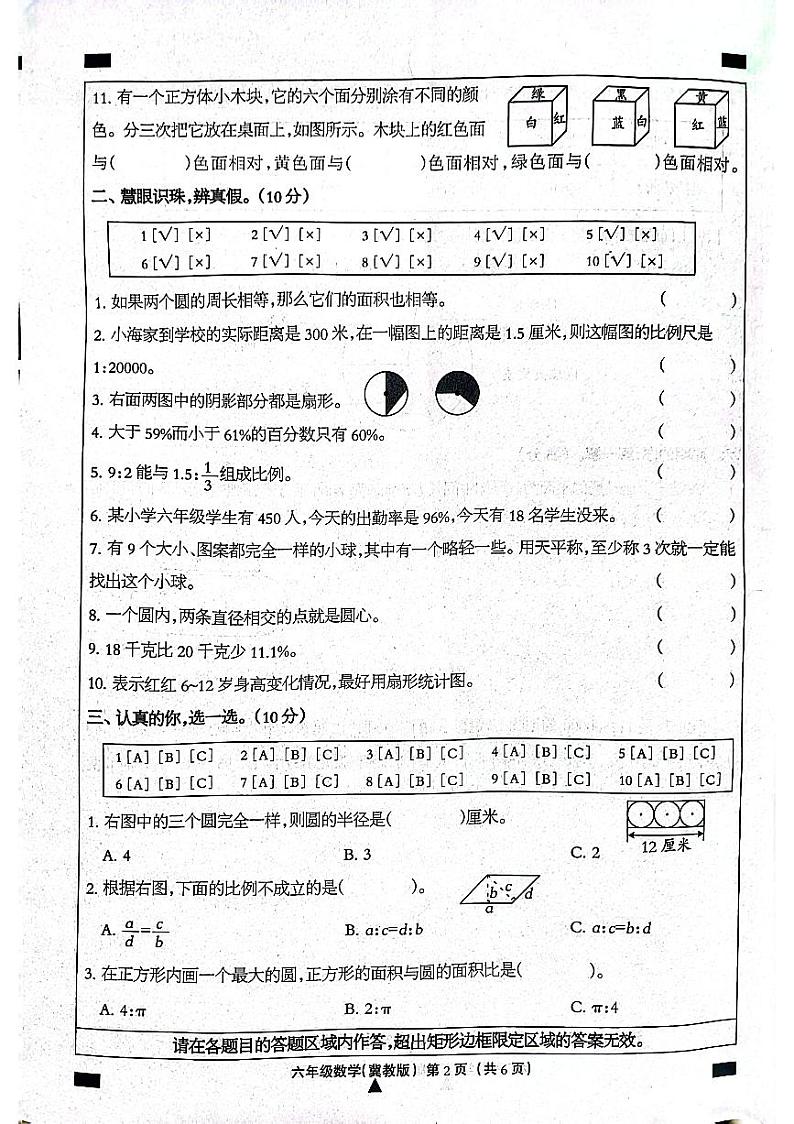 11. 有一个正方体小木块,它的六个面分别涂有不同的颜
色。分三次把它放在桌面上,如图所示。木块上的红色面
绿 白 红 黑 蓝 白 黄 红 蓝
与( )色面相对,黄色面与( )色面相对,绿色面与( )色面相对。
二、慧眼识珠,辨真假。(10分)
1 [√] [×] 2 [√] [×] 3 [√] [×] 4 [√] [×] 5 [√] [×]
6 [√] [×] 7 [√] [×] 8 [√] [×] 9 [√] [×] 10 [√] [×]
1. 如果两个圆的周长相等,那么它们的面积也相等。 ( )
2. 小海家到学校的实际距离是 300 米,在一幅图上的距离是 1.5 厘米,则这幅图的比例尺是
1:20000。 ( )
3. 右面两图中的阴影部分都是扇形。 ( )
4. 大于 59%而小于 61%的百分数只有 60%。 ( )
5. 9:2 能与 1.5:1/3 组成比例。 ( )
6. 某小学六年级学生有 450 人,今天的出勤率是 96%,今天有 18 名学生没来。 ( )
7. 有 9 个大小、图案都完全一样的小球,其中有一个略轻一些。用天平称,至少称 3 次就一定能
找出这个小球。 ( )
8. 一个圆内,两条直径相交的点就是圆心。 ( )
9. 18 千克比 20 千克少 11.1%。 ( )
10. 表示红红 6~12 岁身高变化情况,最好用扇形统计图。 ( )
三、认真的你,选一选。(10分)
1 [A] [B] [C] 2 [A] [B] [C] 3 [A] [B] [C] 4 [A] [B] [C] 5 [A] [B] [C]
6 [A] [B] [C] 7 [A] [B] [C] 8 [A] [B] [C] 9 [A] [B] [C] 10 [A] [B] [C]
1. 右图中的三个圆完全一样,则圆的半径是( )厘米。
12 厘米
A. 4 B. 3 C. 2
2. 根据右图,下面的比例不成立的是( )。
b c d
a
A. a/d=c/b B. a:c=d:b C. a:c=b:d
3. 在正方形内画一个最大的圆,正方形的面积与圆的面积比是( )。
A. 4:π B. 2:π C. π:4
请在各题目的答题区域内作答,超出矩形边框限定区域的答案无效。
六年级数学(冀教版) 第 2 页 (共 6 页)